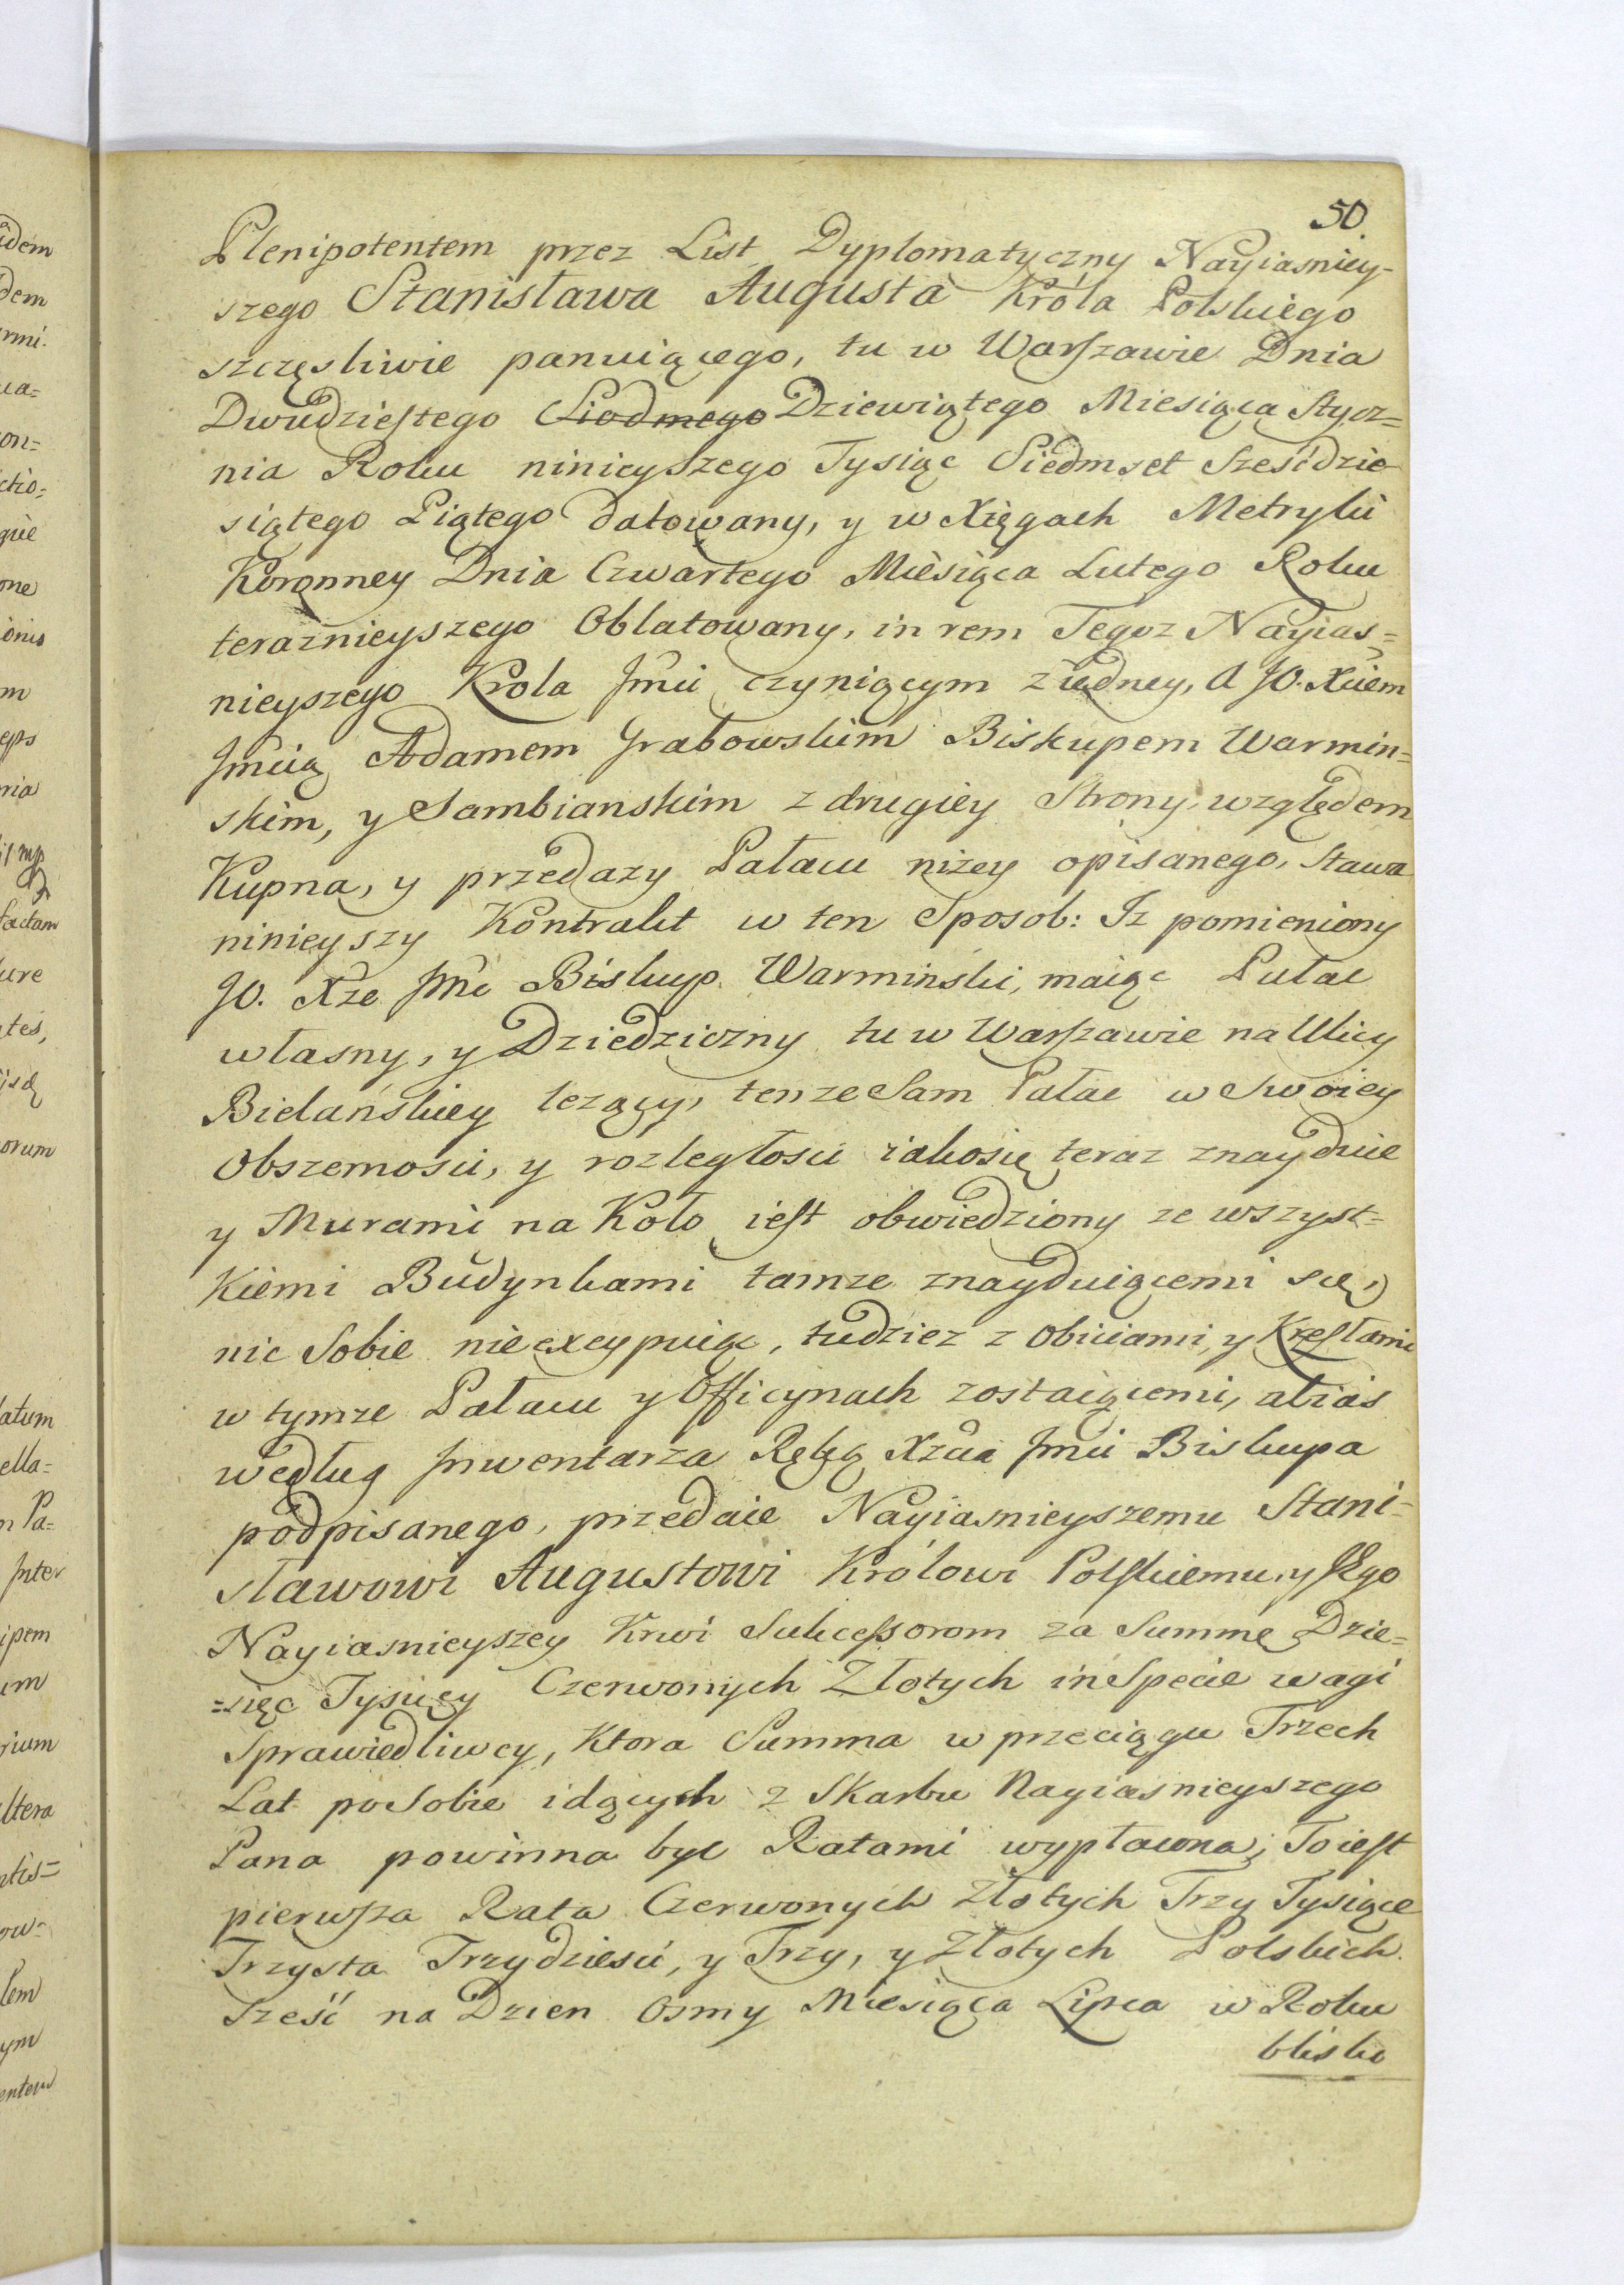 50.
Plenipotentem przez List Dyplomatyczny Nayiasniey-
szego Stanisława Augusta Króla Polskiego
szczęsliwie panuiącego, tu w Warszawie Dnia
Dwudziestego Siodmego Dziewiątego Miesiąca Stycz=
nia Roku ninieyszego Tysiąc Siedmset Sześćdzie
siątego Piątego datowany, y w Xięgach Metryki
Koronney Dnia Czwartego Miesiąca Lutego Roku
teraznieyszego Oblatowany, in rem Tegoz Nayias=
nieyszego Krola Jmci czyniącym z iedney, a JO. Xciem
Jmcią Adamem Grabowskim Biskupem Warmin=
skim, y Sambianskim z drugiey Strony, względem
Kupna, y przedazy Pałacu nizey opisanego, stawa
ninieyszy Kontrakt w ten Sposob: Iz pomieniony
JO. Xże Jmć Biskup Warminski, maiąc Pałac
własny, y Dziedziczny tu w Warszawie na Ulicy
Bielańskiey lezący, tenze Sam Pałac w Swoiey
Obszernosci, y rozległosci iakosię teraz znayduie
y Murami na Koło iest obwiedziony ze wszyst=
kiemi Budynkami tamze znayduiącemi się,
nic Sobie nie excypuiąc, tudziez z Obiciami, y Krzesłami
w tymze Pałacu y Officynach zostaiącemi, alias
według Jnwentarza Ręką Xzcia Jmci Biskupa
podpisanego, przedaie Nayiasnieyszemu Stani-
sławowi Augustowi Królowi Polskiemu, y Jego
Nayiasnieyszey Krwi Sukcessorom za Summę Dzie=
=sięc Tysięcy Czerwonych Złotych inSpecie wagi
Sprawiedliwey, Ktora Summa w przeciągu Trzech
Lat poSobie idących z Skarbu Nayiasnieyszego
Pana powinna byc Ratami wypłacona; Toiest
pierwsza Rata Czerwonych Złotych Trzy Tysiące
Trzysta Trzydziesci, y Trzy, y Złotych Polskich
Sześć na Dzien Osmy Miesiąca Lipca w Roku
blisko